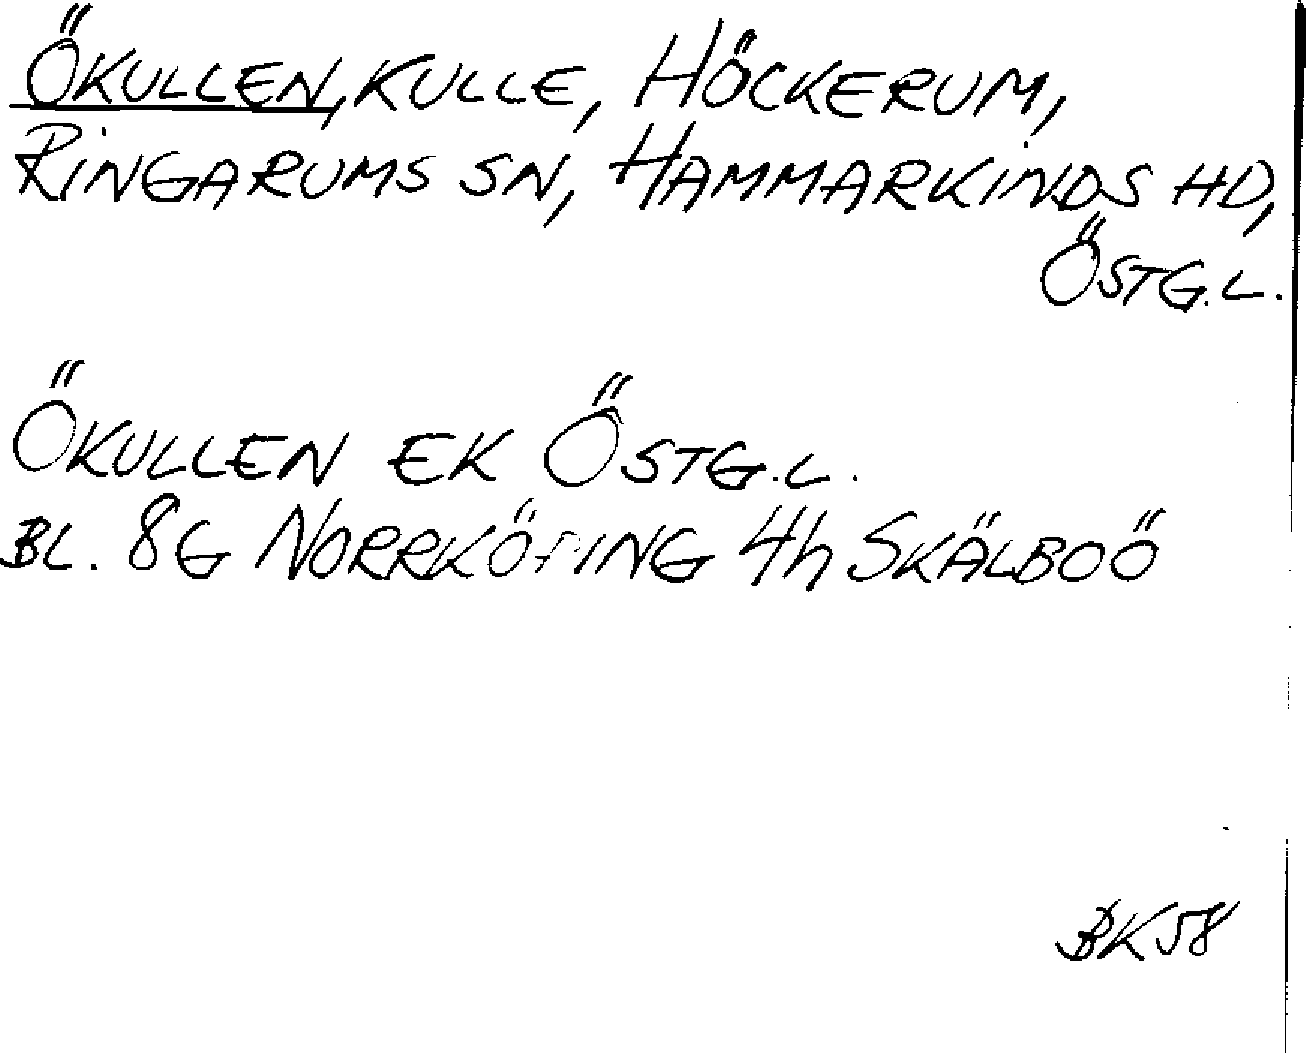 ÖKULLEN, KULLE, HÖCKERUM,
RINGARUMS SN, HAMMARKINDS HD,
ÖSTG.L.
ÖKULLEN EK ÖSTG.L.
BL. 8G NORRKÖPING 4h SKÄLBOÖ
BK58